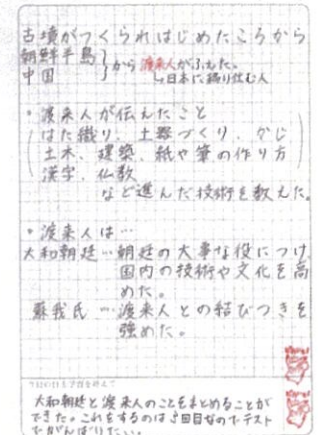 古墳がつくられはじめたころから
朝鮮半島
中国
から渡来人がふえた。
↳日本に移り住む人
・渡来人が伝えたこと
はた織り、土器づくり、かじ
土木、建築、紙や筆の作り方
漢字、仏教
など進んだ技術を教えた。
・渡来人は…
大和朝廷…朝廷の大事な役につけ
国内の技術や文化を高
めた。
蘇我氏…渡来人との結びつきを
強めた。
今日の自主学習を終えて
大和朝廷と渡来人のことをまとめることが
できた。これをするのは5回目なのでテスト
でがんばりたい。